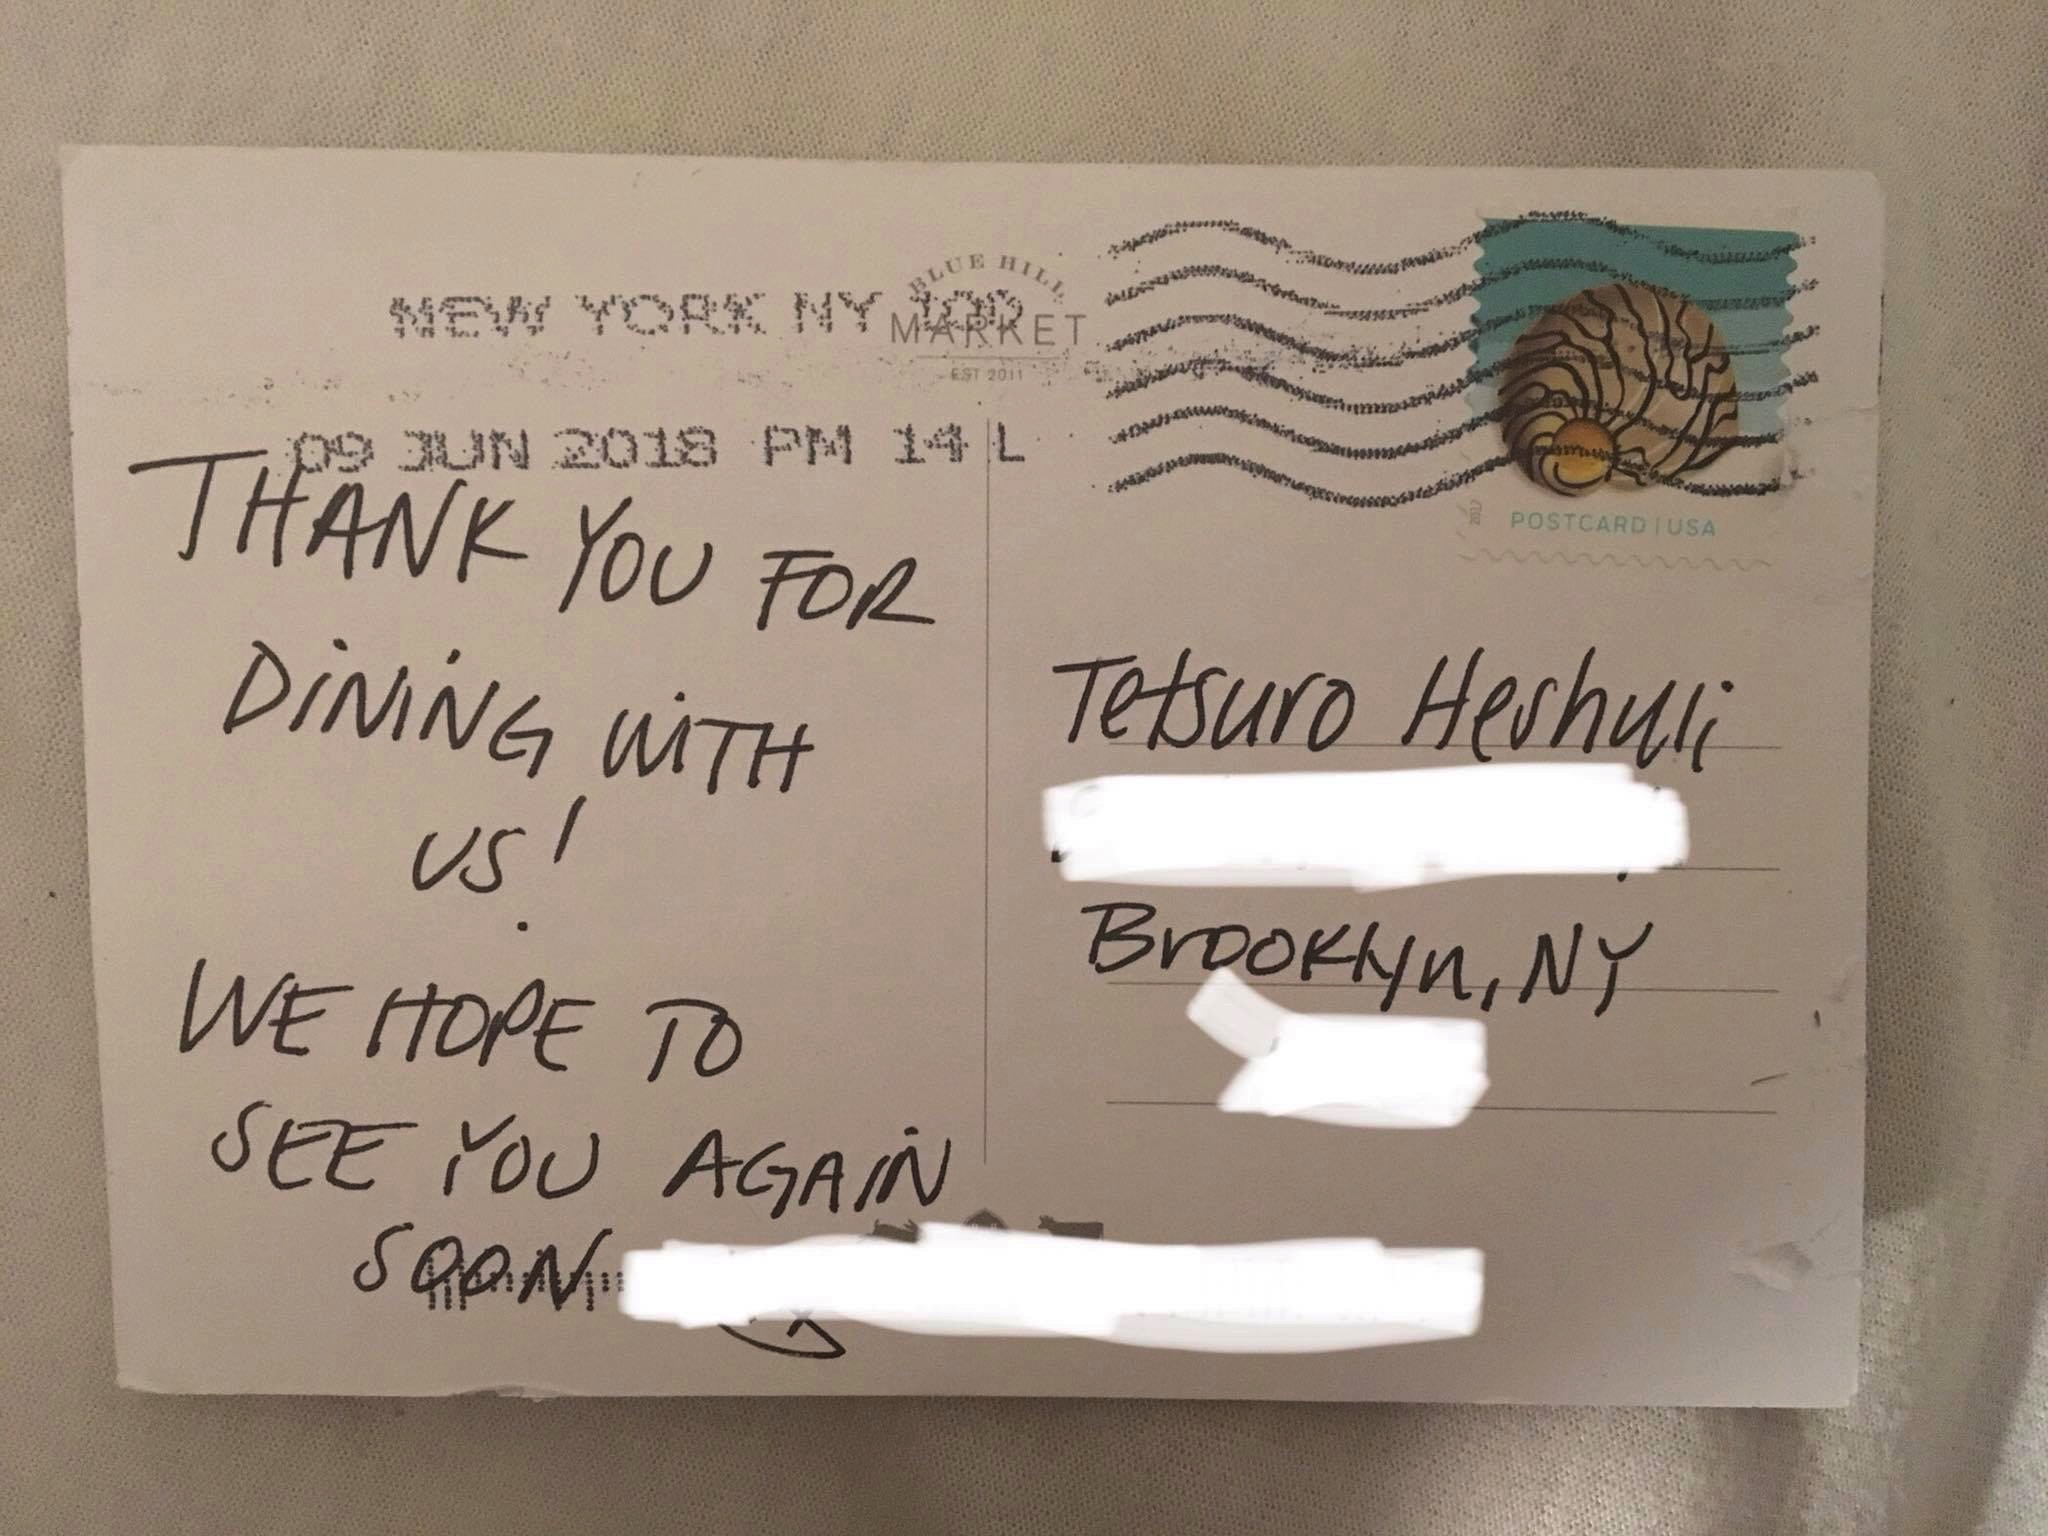 BLUE HILL
NEW YORK NY 100
MARKET
EST 2011
09 JUN 2018 PM 14 L
2017
POSTCARD | USA
THANK YOU FOR
DINING WITH
US!
WE HOPE TO
SEE YOU AGAIN
SOON
Tetsuro Heshuli
Brooklyn, NY